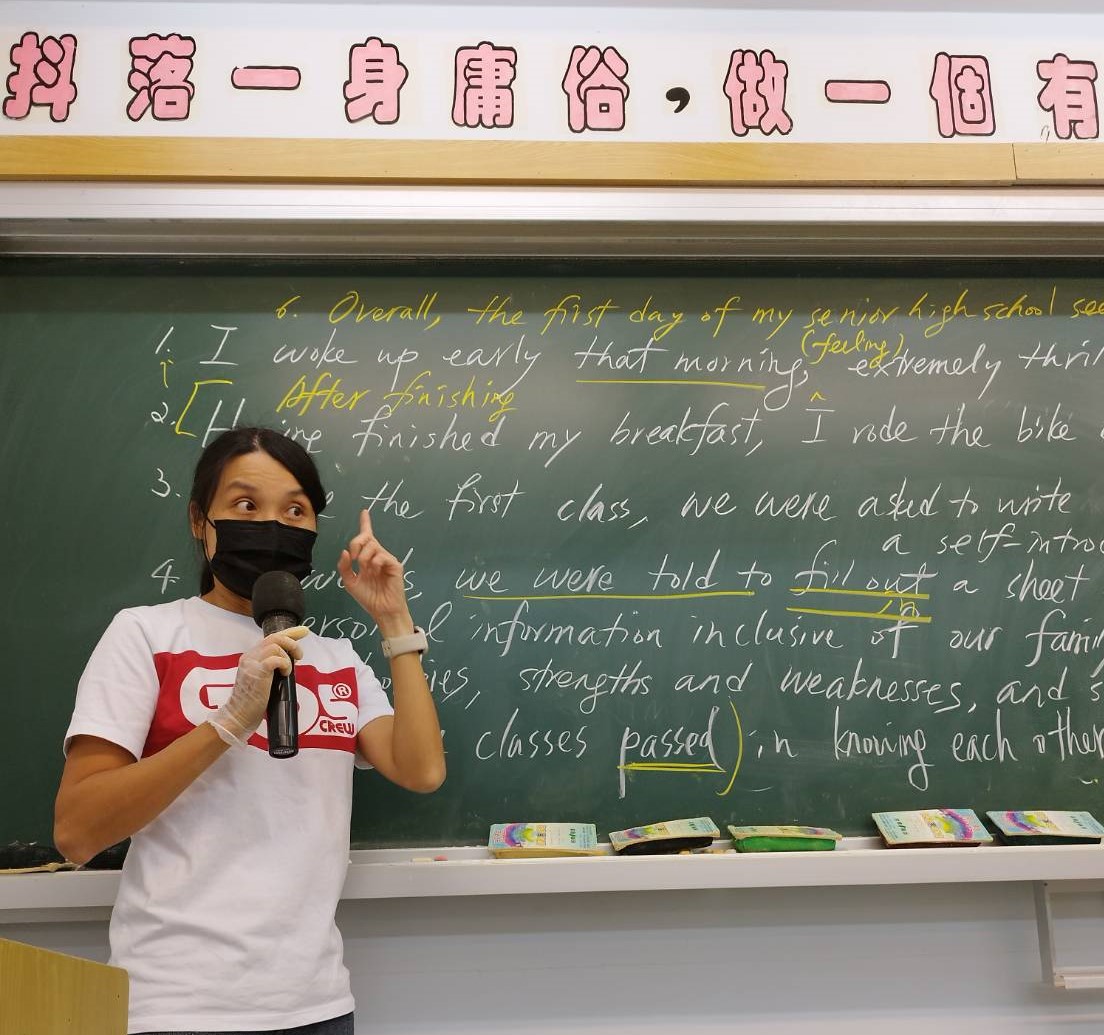 抖落一身庸俗，做一個有
6. Overall, the first day of my senior high school see
(feeling)
1. I woke up early that morning, extremely thri
After finishing
2. finished my breakfast, I rode the bike
3. the first class, we were asked to write
a self-intro
4. we were told to fill out a sheet
in
information inclusive of our fami
strengths and weaknesses, and s
classes passed) in knowing each other
G S® CREW